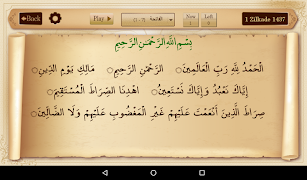 Back
Play
الفاتحة
New
1
Left
0
1 Zilkade 1437
بِسْمِ اللَّهِ الرَّحْمَٰنِ الرَّحِيمِ
الْحَمْدُ لِلَّهِ رَبِّ الْعَالَمِينَ ۝ الرَّحْمَٰنِ الرَّحِيمِ ۝ مَالِكِ يَوْمِ الدِّينِ ۝
إِيَّاكَ نَعْبُدُ وَإِيَّاكَ نَسْتَعِينُ ۝ اهْدِنَا الصِّرَاطَ الْمُسْتَقِيمَ ۝
صِرَاطَ الَّذِينَ أَنْعَمْتَ عَلَيْهِمْ غَيْرِ الْمَغْضُوبِ عَلَيْهِمْ وَلَا الضَّالِّينَ ۝